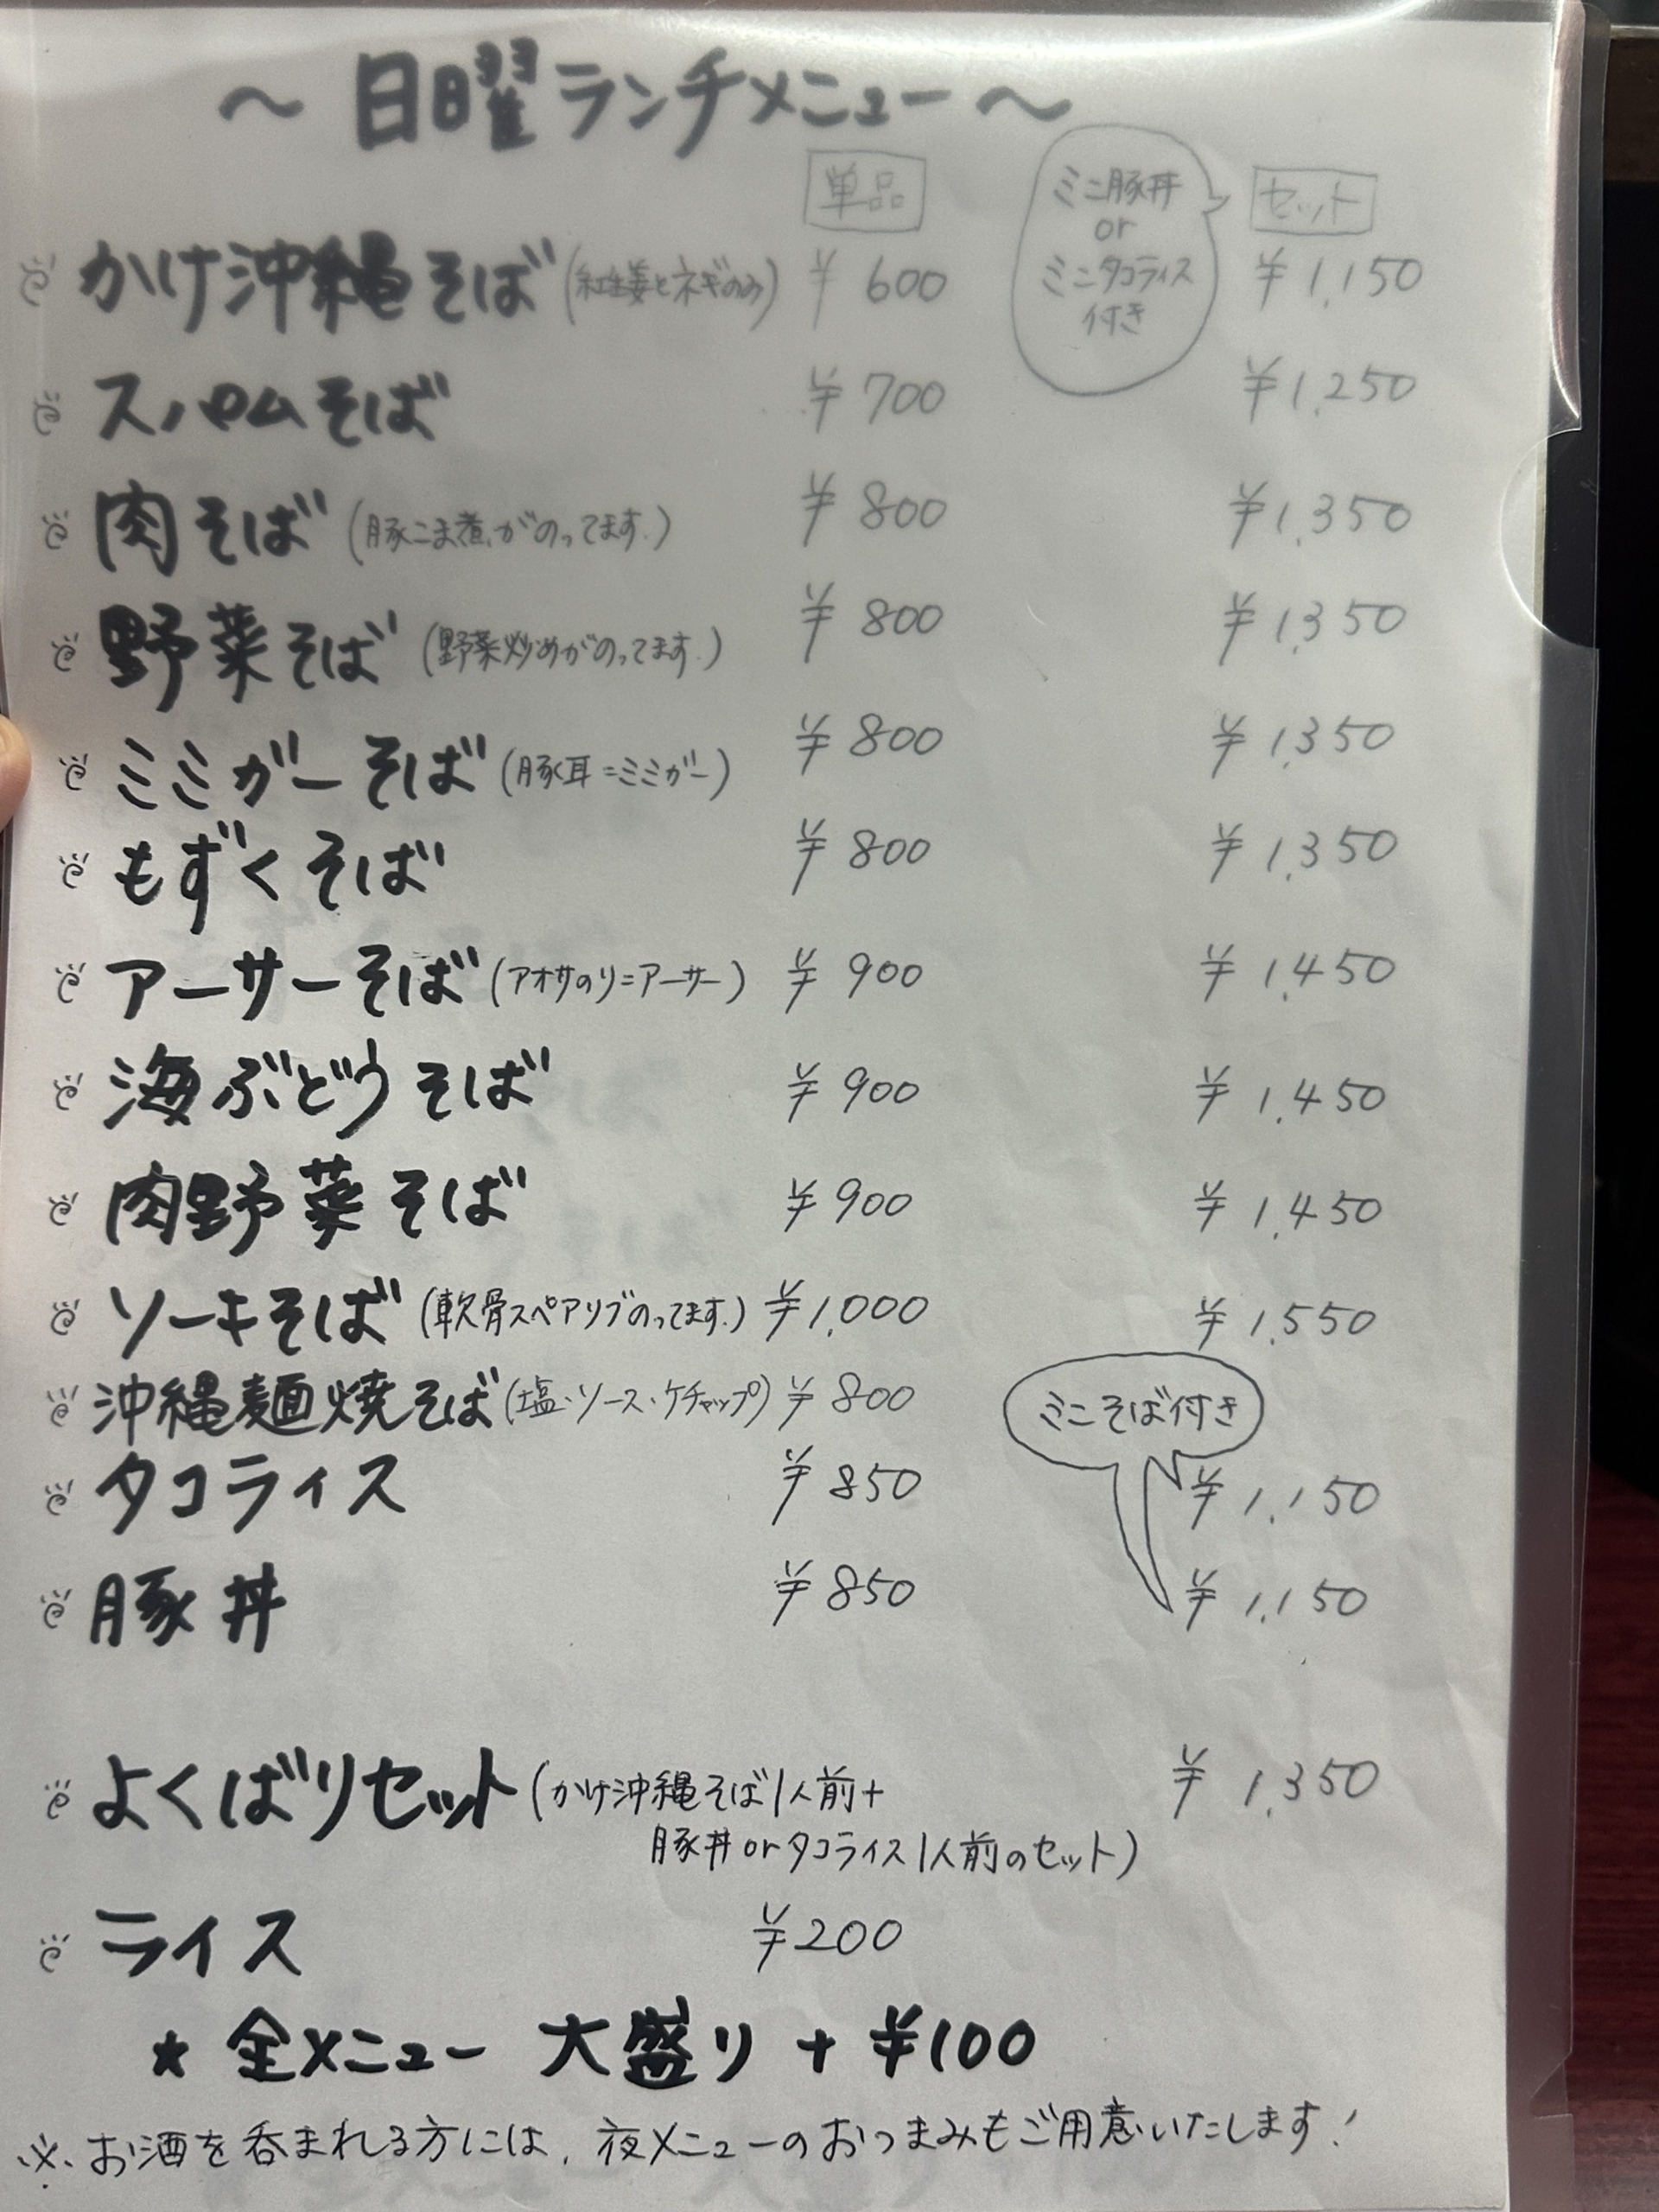 ～ 日曜ランチメニュー ～
単品
ミニ豚丼
or
ミニタコライス
付き
セット
かけ沖縄そば (紅生姜とネギのみ) ¥600 ¥1,150
スパムそば ¥700 ¥1,250
肉そば (豚こま煮がのってます。) ¥800 ¥1,350
野菜そば (野菜炒めがのってます。) ¥800 ¥1,350
ミミガーそば (豚耳=ミミガー) ¥800 ¥1,350
もずくそば ¥800 ¥1,350
アーサーそば (アオサのり=アーサー) ¥900 ¥1,450
海ぶどうそば ¥900 ¥1,450
肉野菜そば ¥900 ¥1,450
ソーキそば (軟骨スペアリブのってます。) ¥1,000 ¥1,550
沖縄麺焼そば (塩・ソース・ケチャップ) ¥800
ミニそば付き
タコライス ¥850 ¥1,150
豚丼 ¥850 ¥1,150
よくばりセット (かけ沖縄そば1人前+ ¥1,350
豚丼orタコライス1人前のセット)
ライス ¥200
★ 全メニュー 大盛り + ¥100
※ お酒を呑まれる方には、夜メニューのおつまみもご用意いたします!